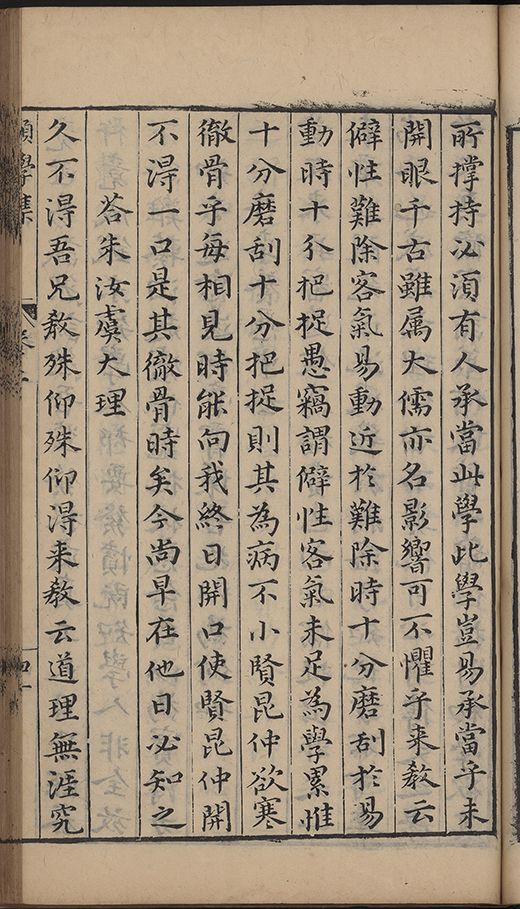 所撑持必須有人承當此學此學豈易承當乎未
開眼千古雖属大儒亦名影響可不懼乎来教云
僻性難除客氣易動近於難除時十分磨刮於易
動時十分把捉愚竊謂僻性客氣未足為學累惟
十分磨刮十分把捉則其為病不小賢昆仲欲寒
徹骨乎每相見時能向我終日開口使賢昆仲開
不得一口是其徹骨時矣今尚早在他日必知之
荅朱汝虞大理
久不得吾兄教殊仰殊仰得来教云道理無涯究
學集